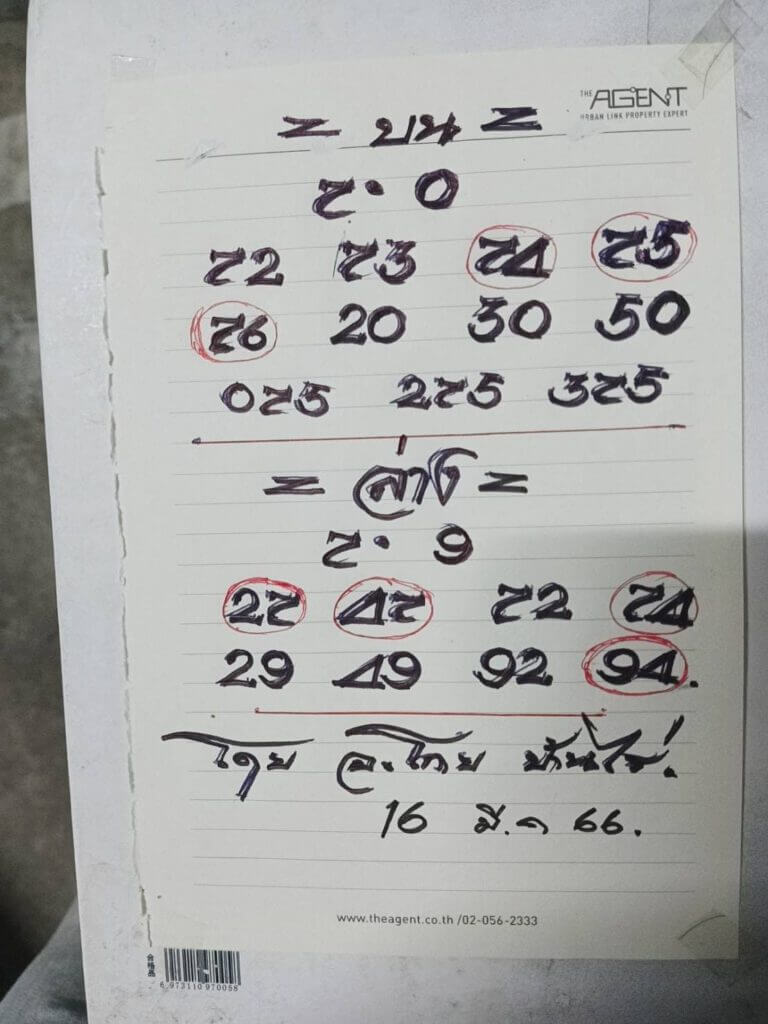 THE AGENT
URBAN LINK PROPERTY EXPERT
= บน =
7. 0
72 73 74 75
76 20 30 50
075 275 375
= ล่าง =
7. 9
27 47 72 74
29 49 92 94.
โดย
16 มี.ค 66.
www.theagent.co.th /02-056-2333
合格品
6 973110 970058